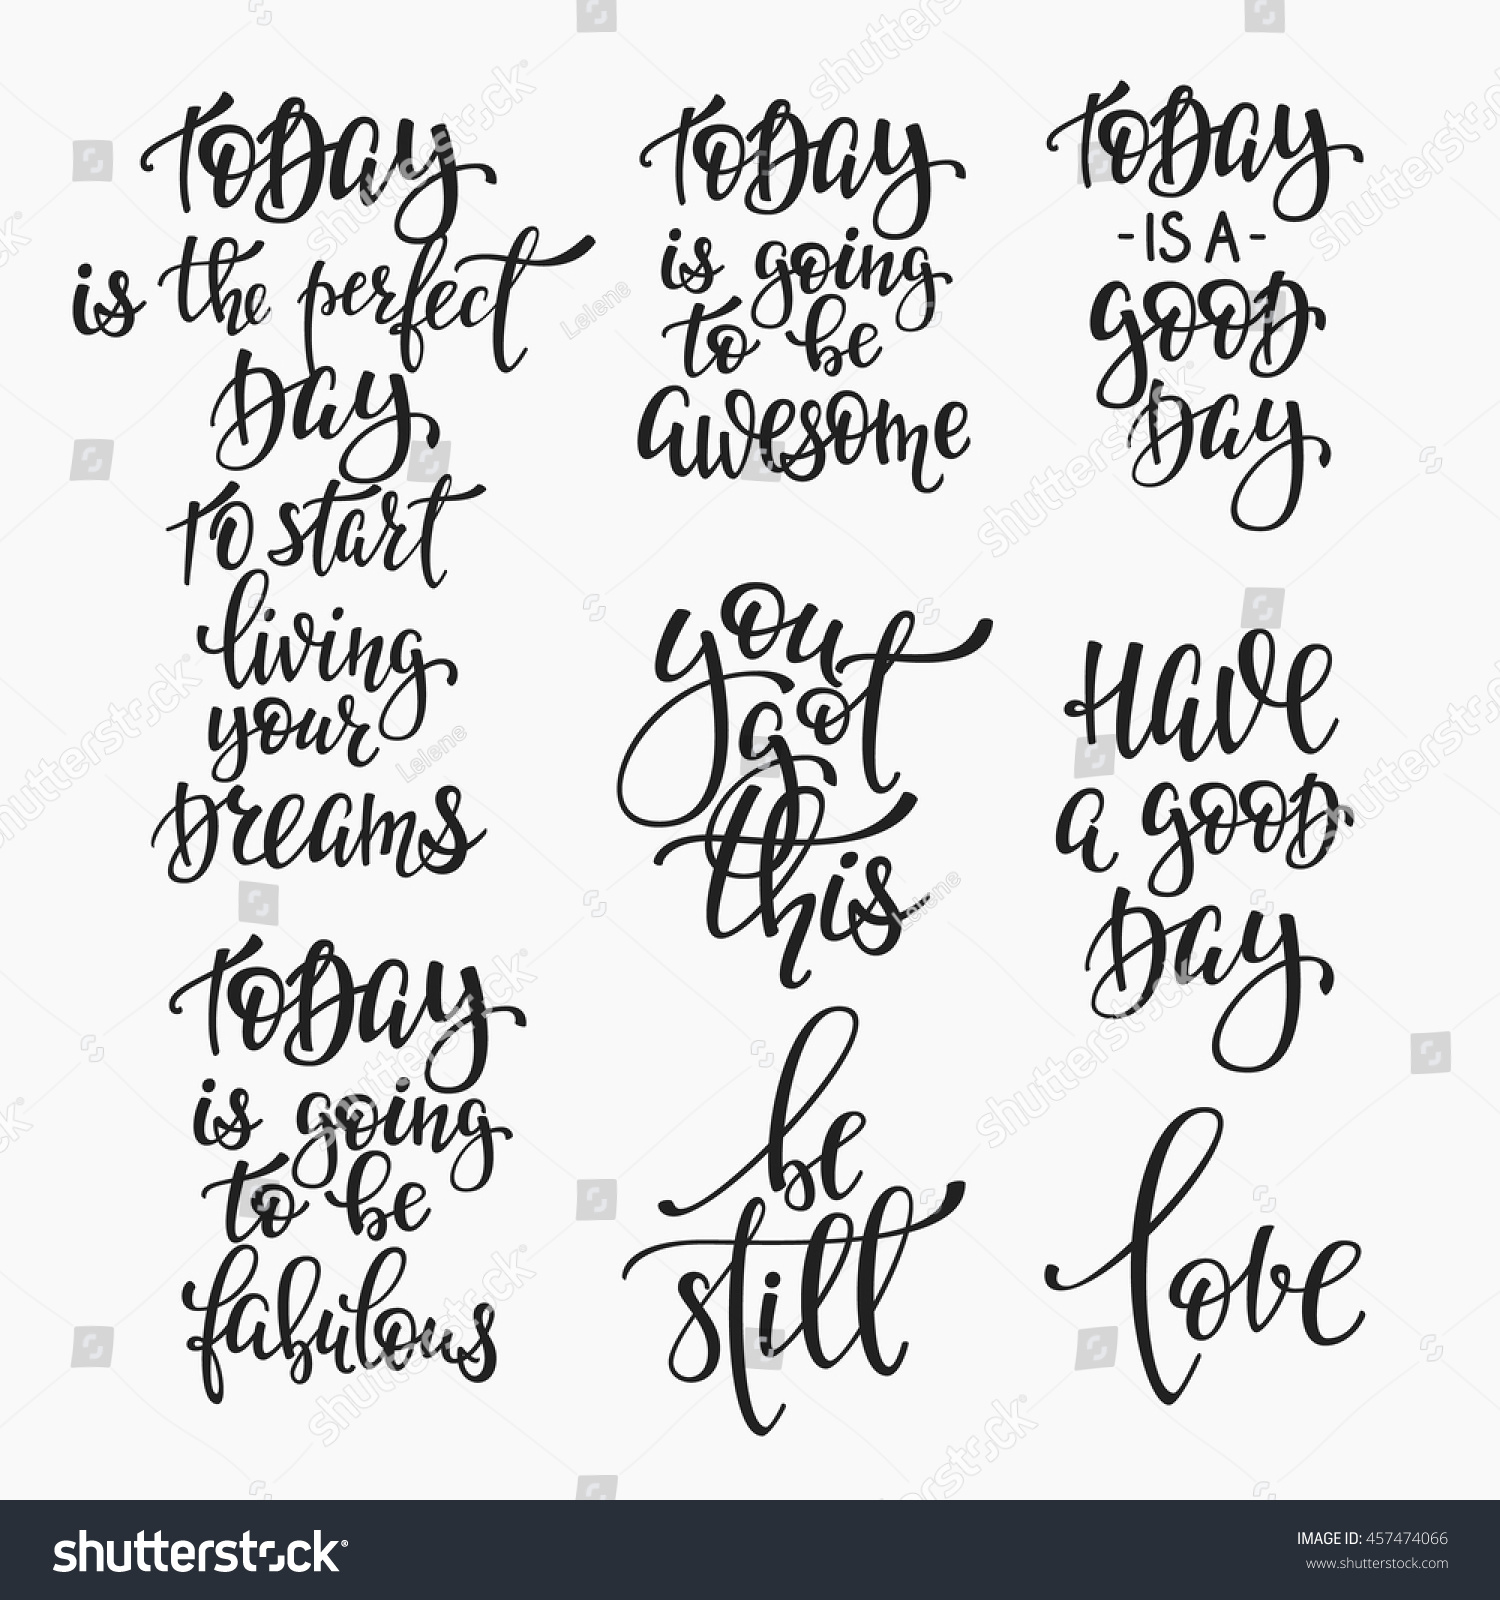 Today
is the perfect
Day
To start
living
your
Dreams
Today
is going
to be
awesome
Today
-IS A-
good
Day
you
got
this
Have
a good
Day
Today
is going
to be
fabulous
be
still
love
shutterstock
Lelene
shutterstock
IMAGE ID: 457474066
www.shutterstock.com